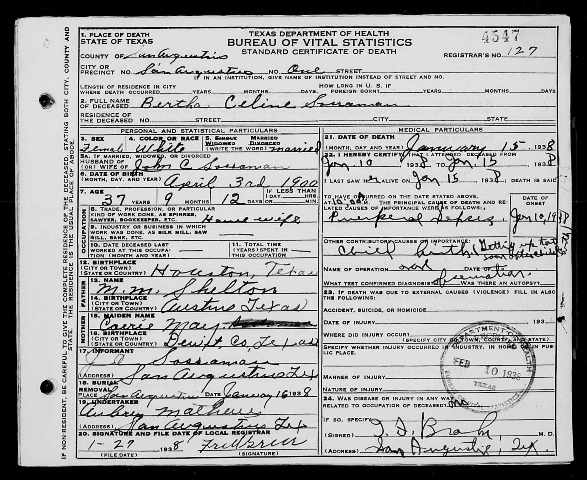 TEXAS DEPARTMENT OF HEALTH
BUREAU OF VITAL STATISTICS
STANDARD CERTIFICATE OF DEATH
4547
1. PLACE OF DEATH
STATE OF TEXAS
COUNTY OF San Augustine
REGISTRAR'S NO. 127
CITY OR
PRECINCT NO. San Augustine NO. One STREET
IF IN AN INSTITUTION, GIVE NAME OF INSTITUTION INSTEAD OF STREET AND NO.
LENGTH OF RESIDENCE IN CITY
WHERE DEATH OCCURRED YEARS MONTHS DAYS
HOW LONG IN U. S. IF
FOREIGN BORN YEARS MONTHS DAYS
2. FULL NAME OF DECEASED Bertha Celine Sossaman
RESIDENCE OF THE DECEASED NO. STREET CITY STATE
PERSONAL AND STATISTICAL PARTICULARS
3. SEX Female
4. COLOR OR RACE White
5. SINGLE MARRIED WIDOWED DIVORCED (WRITE THE WORD) married
5A. IF MARRIED, WIDOWED, OR DIVORCED
HUSBAND OF (OR) WIFE OF C Sossaman
6. DATE OF BIRTH (MONTH, DAY, YEAR) April 3rd 1900
7. AGE 37 YEARS 9 MONTHS 12 DAYS IF LESS THAN 1 DAY
8. TRADE, PROFESSION, OR PARTICULAR KIND OF WORK DONE, AS SPINNER, SAWYER, BOOKKEEPER, ETC. House wife
9. INDUSTRY OR BUSINESS IN WHICH WORK WAS DONE, AS SILK MILL, SAW MILL, BANK, ETC.
10. DATE DECEASED LAST WORKED AT THIS OCCUPATION
11. TOTAL TIME (YEARS) SPENT IN THIS OCCUPATION
12. BIRTHPLACE (CITY OR TOWN) (STATE OR COUNTRY) Houston, Texas
FATHER
13. NAME M. M. Shelton
14. BIRTHPLACE (CITY OR TOWN) (STATE OR COUNTRY) Austin Texas
MOTHER
15. MAIDEN NAME Carrie May
16. BIRTHPLACE (CITY OR TOWN) (STATE OR COUNTRY) Dewitt Co, Texas
17. INFORMANT Sossaman
(ADDRESS) San Augustine Tex
18. BURIAL REMOVAL
PLACE San Augustine DATE January 16 1938
19. UNDERTAKER Aubrey Mathews
(ADDRESS) San Augustine Tex
20. SIGNATURE AND FILE DATE OF LOCAL REGISTRAR
1-27 1938
(FILE DATE) (SIGNATURE)
MEDICAL PARTICULARS
21. DATE OF DEATH (MONTH, DAY AND YEAR) January 15 1938
22. I HEREBY CERTIFY THAT I ATTENDED DECEASED FROM
Jan 10 1938 TO Jan 15 1938
I LAST SAW HER ALIVE ON Jan 15 1938
TO HAVE OCCURRED ON THE DATE STATED ABOVE
THE PRINCIPAL CAUSE OF DEATH AND RELATED CAUSES OF IMPORTANCE WERE AS FOLLOWS:
DATE OF ONSET
Puerperal Sepsis Jan 10, 1938
OTHER CONTRIBUTORY CAUSES
Child birth
NAME OF OPERATION DATE OF
WHAT TEST CONFIRMED DIAGNOSIS? WAS THERE AN AUTOPSY
23. IF DEATH WAS DUE TO EXTERNAL CAUSES (VIOLENCE) FILL IN ALSO THE FOLLOWING:
ACCIDENT, SUICIDE, OR HOMICIDE
DATE OF INJURY 193
WHERE DID INJURY OCCUR?
(SPECIFY CITY OR TOWN, COUNTY, AND STATE)
SPECIFY WHETHER INJURY OCCURRED IN INDUSTRY, IN HOME, OR IN PUBLIC PLACE.
MANNER OF INJURY
NATURE OF INJURY
24. WAS DISEASE OR INJURY IN ANY WAY RELATED TO OCCUPATION OF DECEASED?
IF SO, SPECIFY
(SIGNED) M.D.
(ADDRESS) San Augustine, Tex.
DEPARTMENT OF HEALTH
FEB 10 1938
TEXAS